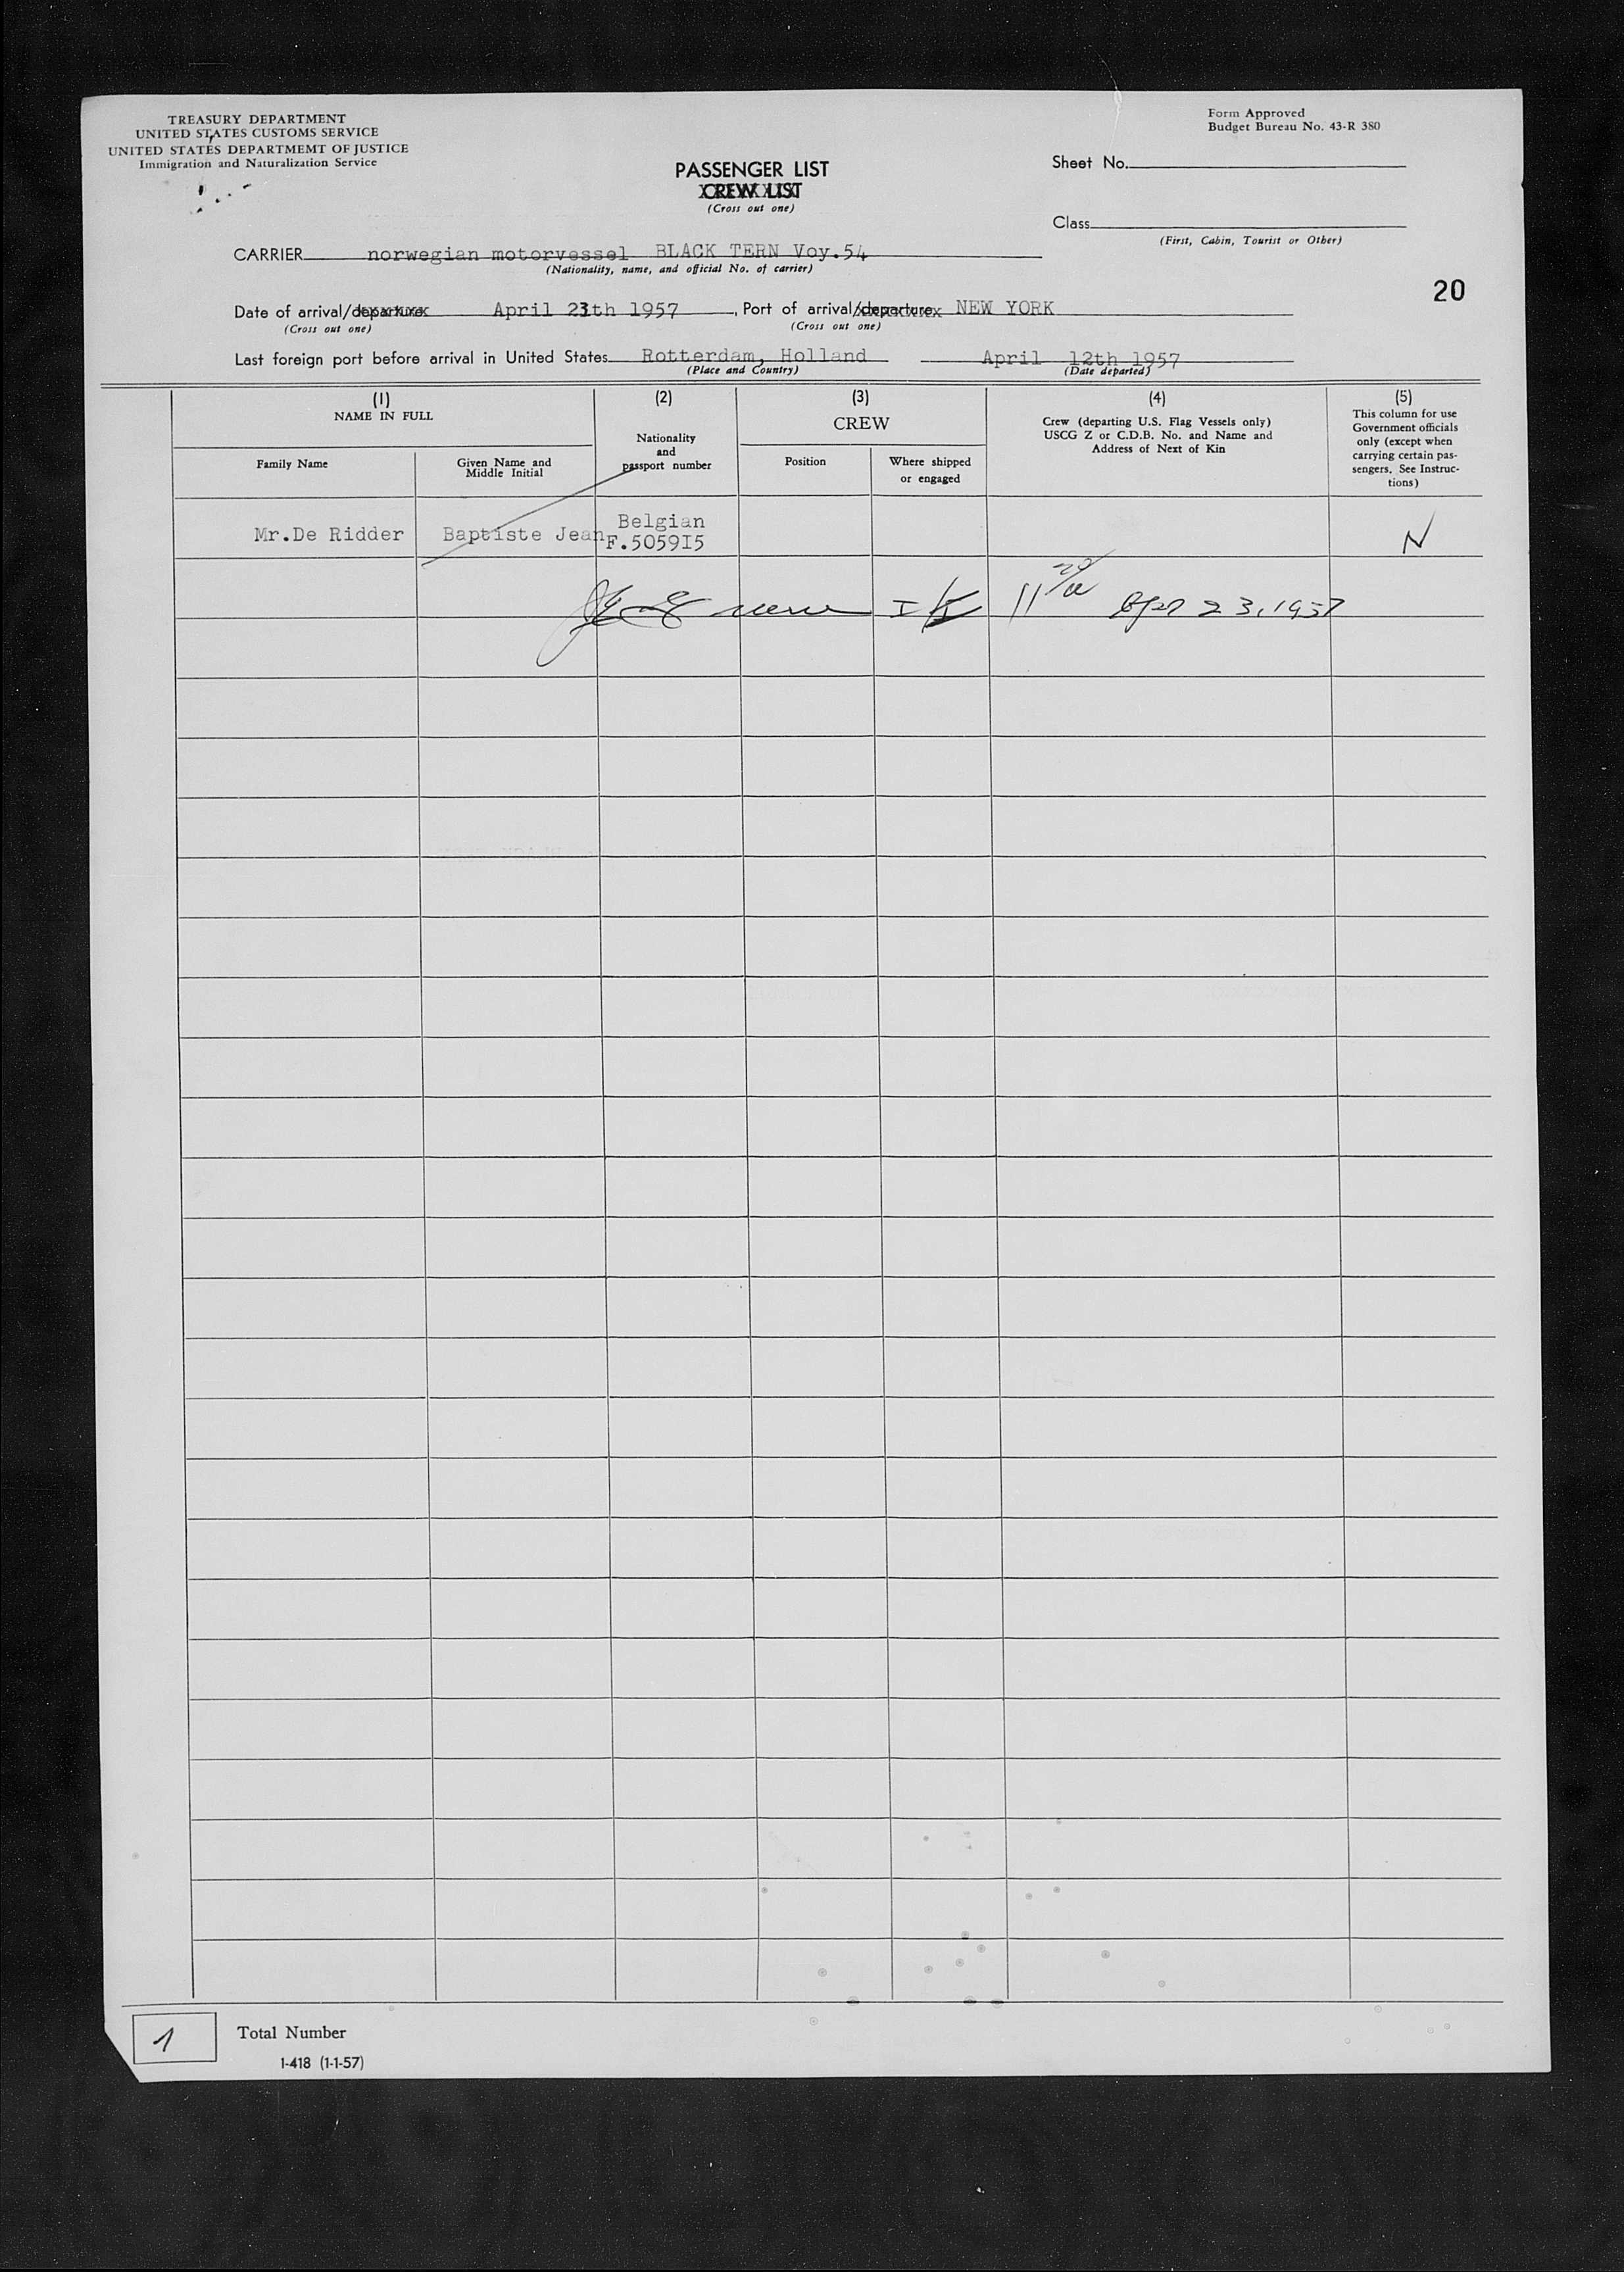 TREASURY DEPARTMENT
UNITED STATES CUSTOMS SERVICE
UNITED STATES DEPARTMEMT OF JUSTICE
Immigration and Naturalization Service
Form Approved
Budget Bureau No. 43-R 380
PASSENGER LIST
CREW LIST
(Cross out one)
Sheet No.
Class
(First, Cabin, Tourist or Other)
CARRIER norwegian motorvessel BLACK TERN Voy.54
(Nationality, name, and official No. of carrier)
20
Date of arrival/departure April 23th 1957, Port of arrival/departure NEW YORK
(Cross out one) (Cross out one)
Last foreign port before arrival in United States Rotterdam, Holland April 12th 1957
(Place and Country) (Date departed)
(1)
NAME IN FULL
Family Name
Given Name and
Middle Initial
(2)
Nationality
and
passport number
(3)
CREW
Position
Where shipped
or engaged
(4)
Crew (departing U.S. Flag Vessels only)
USCG Z or C.D.B. No. and Name and
Address of Next of Kin
(5)
This column for use
Government officials
only (except when
carrying certain pas-
sengers. See Instruc-
tions)
Mr.De Ridder Baptiste Jean Belgian
F.505915 N
23, 1957
1 Total Number
1-418 (1-1-57)